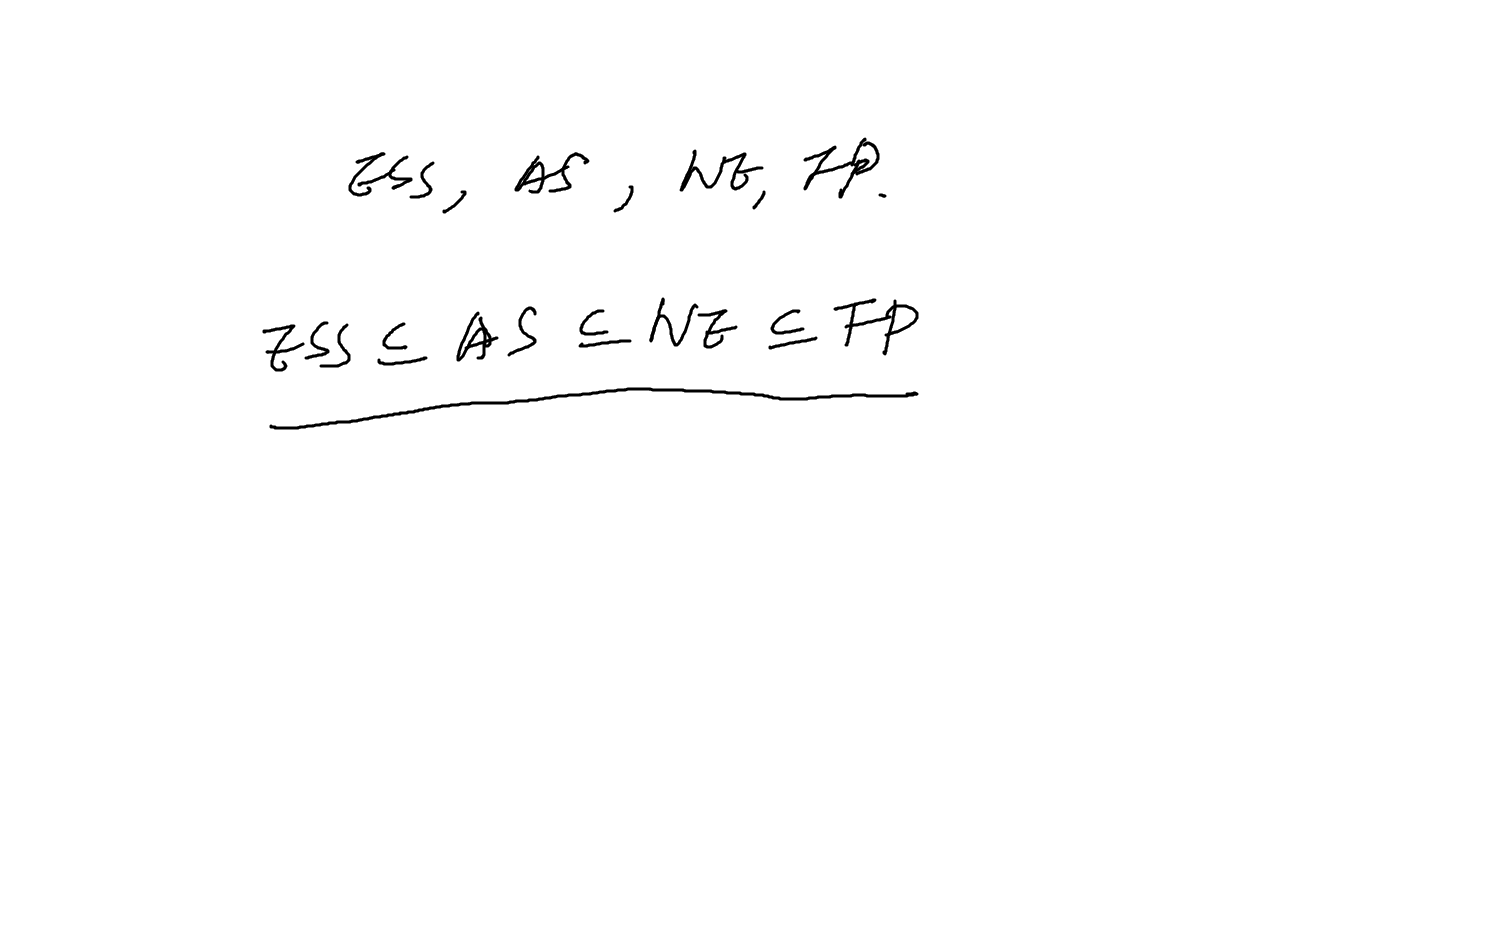 ESS, AS, NE, FP.
ESS ⊆ AS ⊆ NE ⊆ FP